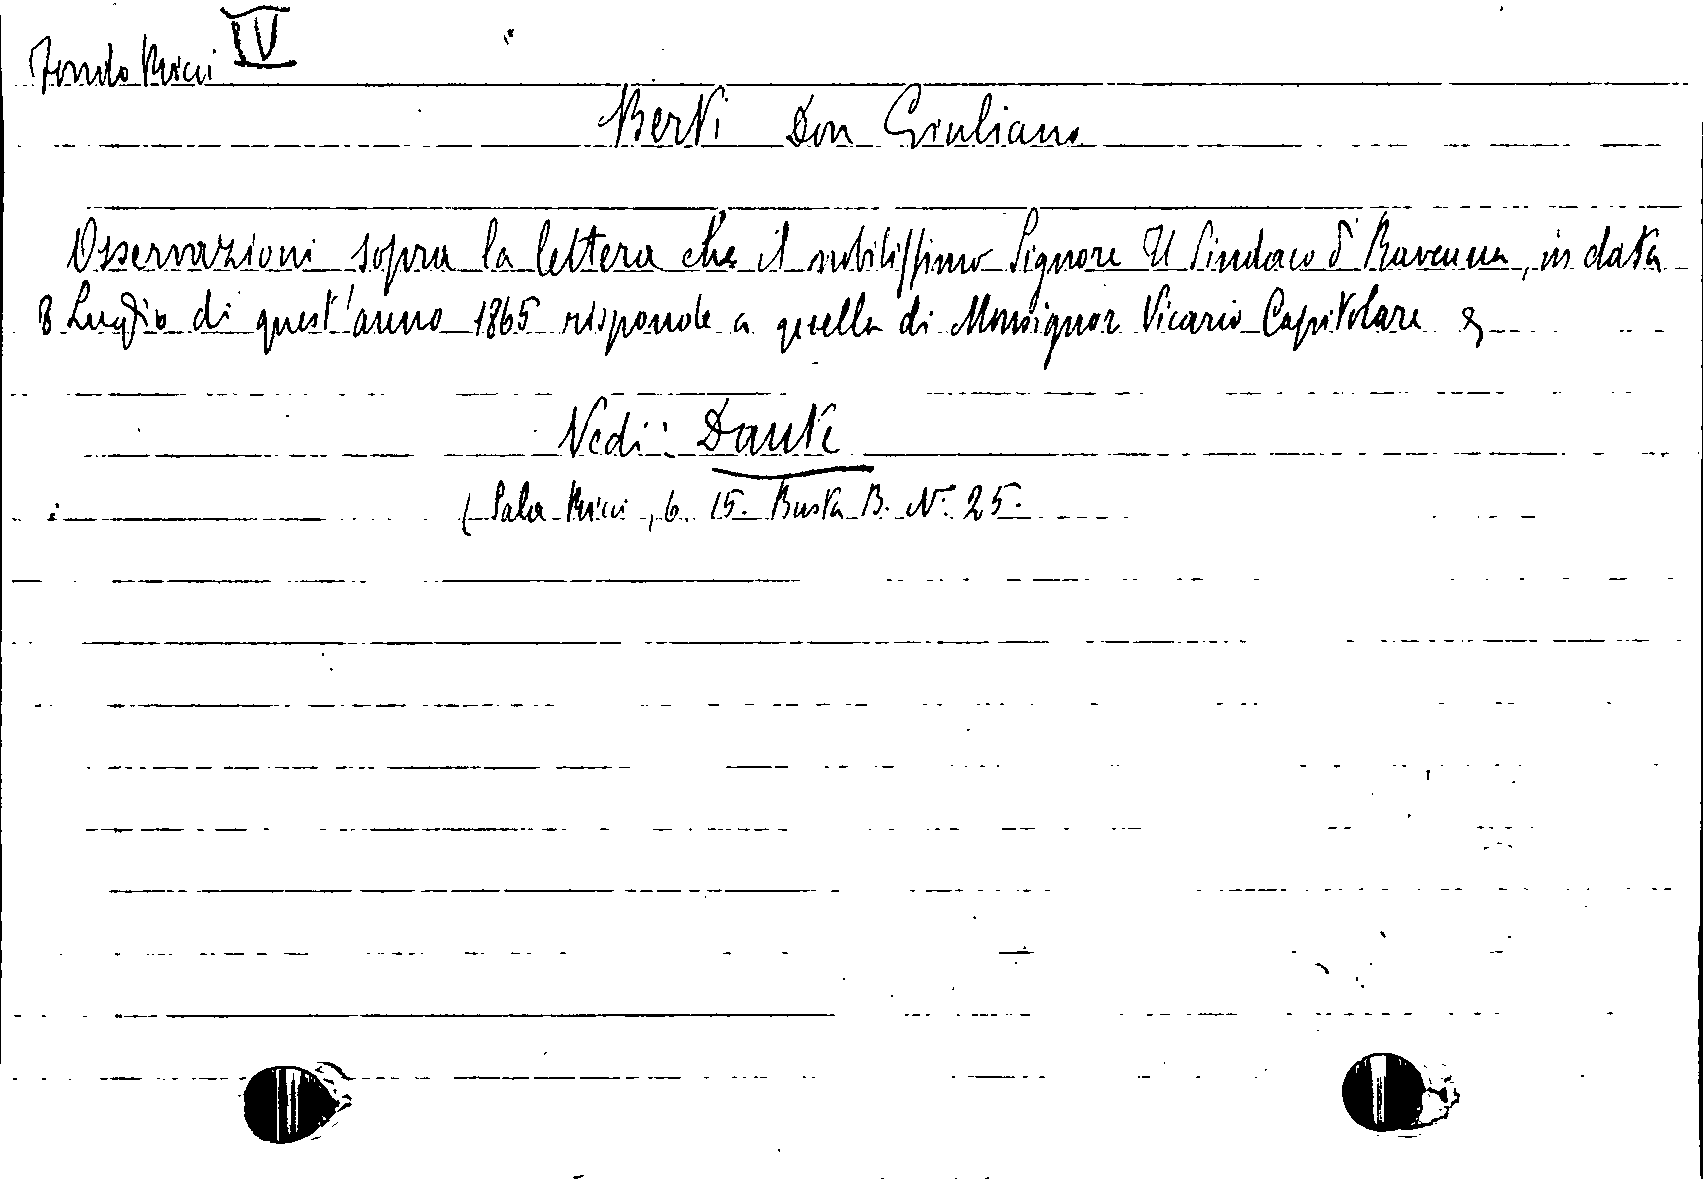 Fondo Ricci IV
Berti Don Giuliano
Osservazioni sopra la lettera che il nobilissimo Signore Il Sindaco di Ravenna, in data
8 Luglio di quest'anno 1865 risponde a quella di Monsignor Vicario Capitolare
Vedi: Dante
( Sala Ricci, 6. 15. Busta B. N. 25.